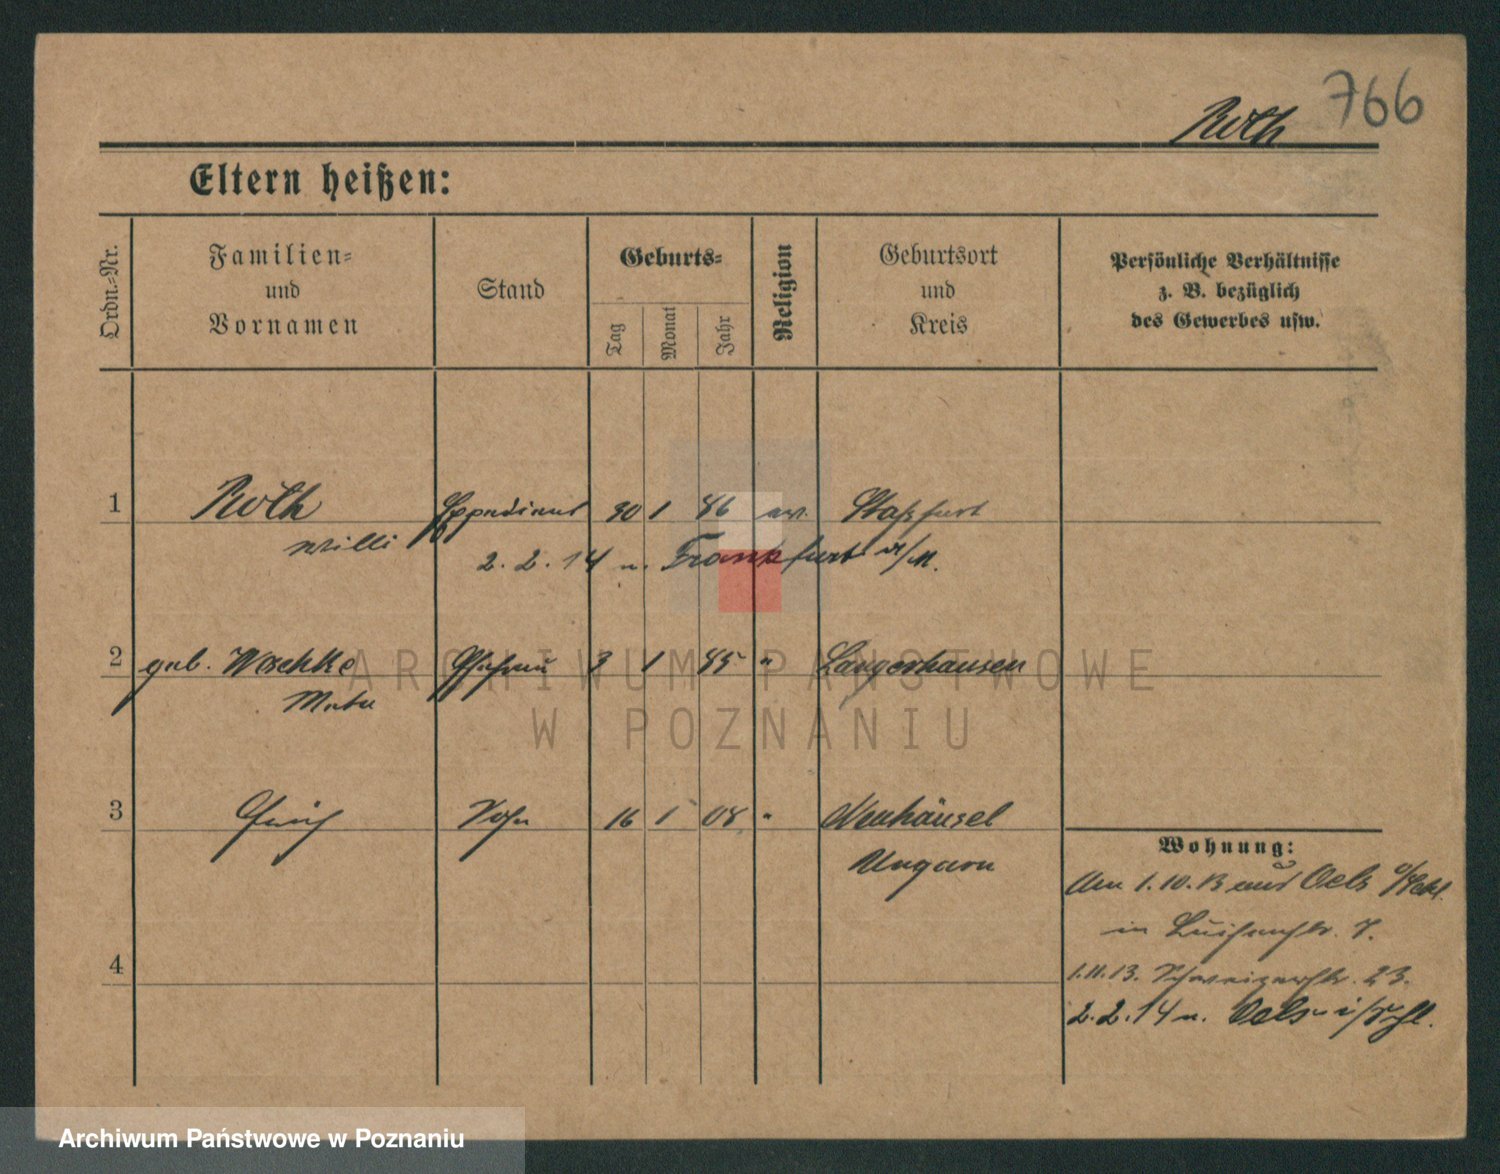 766
Roth
Eltern heißen:
Ordn.-Nr.
Familien- und Vornamen
Stand
Geburts-
Tag
Monat
Jahr
Religion
Geburtsort und Kreis
Persönliche Verhältnisse z. B. bezüglich des Gewerbes usw.
1 Roth 30 1 86 ev. Staßfurt
Willi
2. 2. 14 n. Frankfurt a/M.
2 geb. Waschke Ehefrau 3 1 85 " Langerhausen
3 Erich Sohn 16 1 08 " Neuhäusel
Ungarn
Wohnung:
Am 1.10.13 aus Oels
in Luisenstr. 7.
4
1.11.13. Schweizerstr. 23.
2.2.14 n. Oels i/Schl.
ARCHIWUM PAŃSTWOWE
W POZNANIU
Archiwum Państwowe w Poznaniu